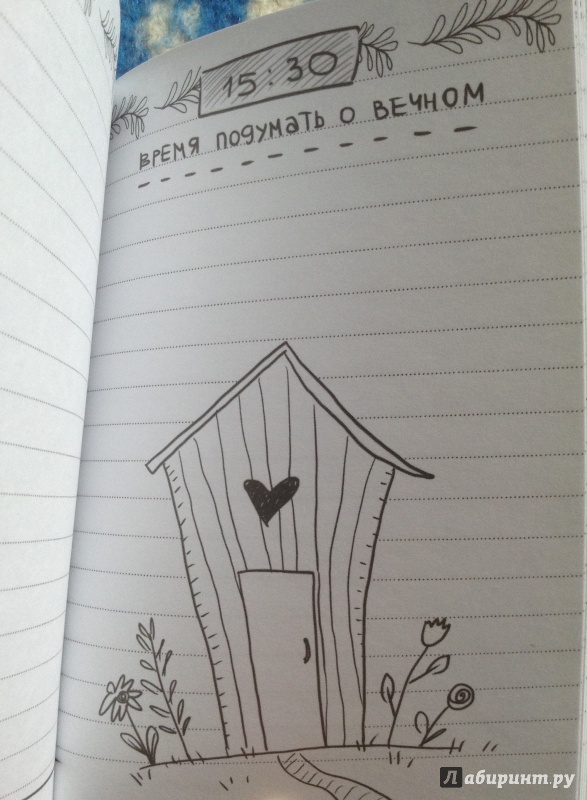 15:30
ВРЕМЯ ПОДУМАТЬ О ВЕЧНОМ
Лабиринт.ру